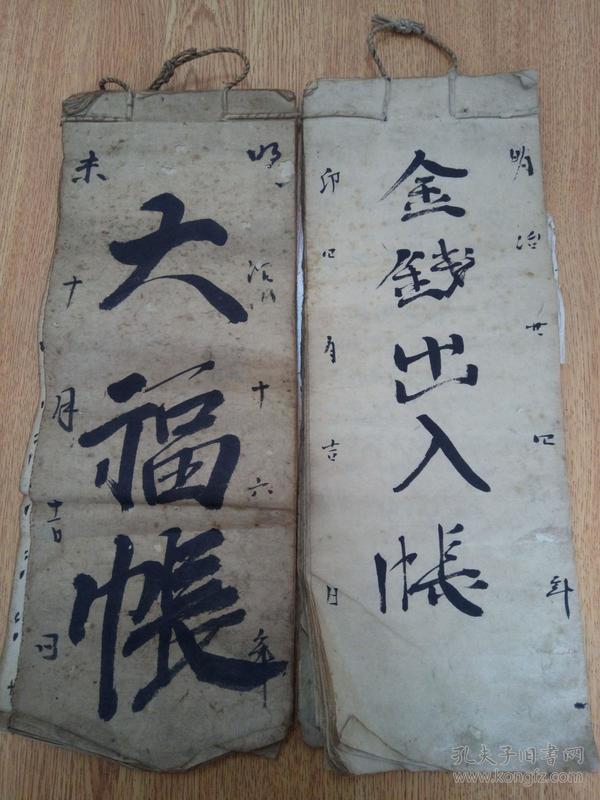 明治廿四年
金銭出入帳
卯四月吉日
明治十六年
大福帳
未十月吉日
孔夫子旧书网
www.kongfz.com